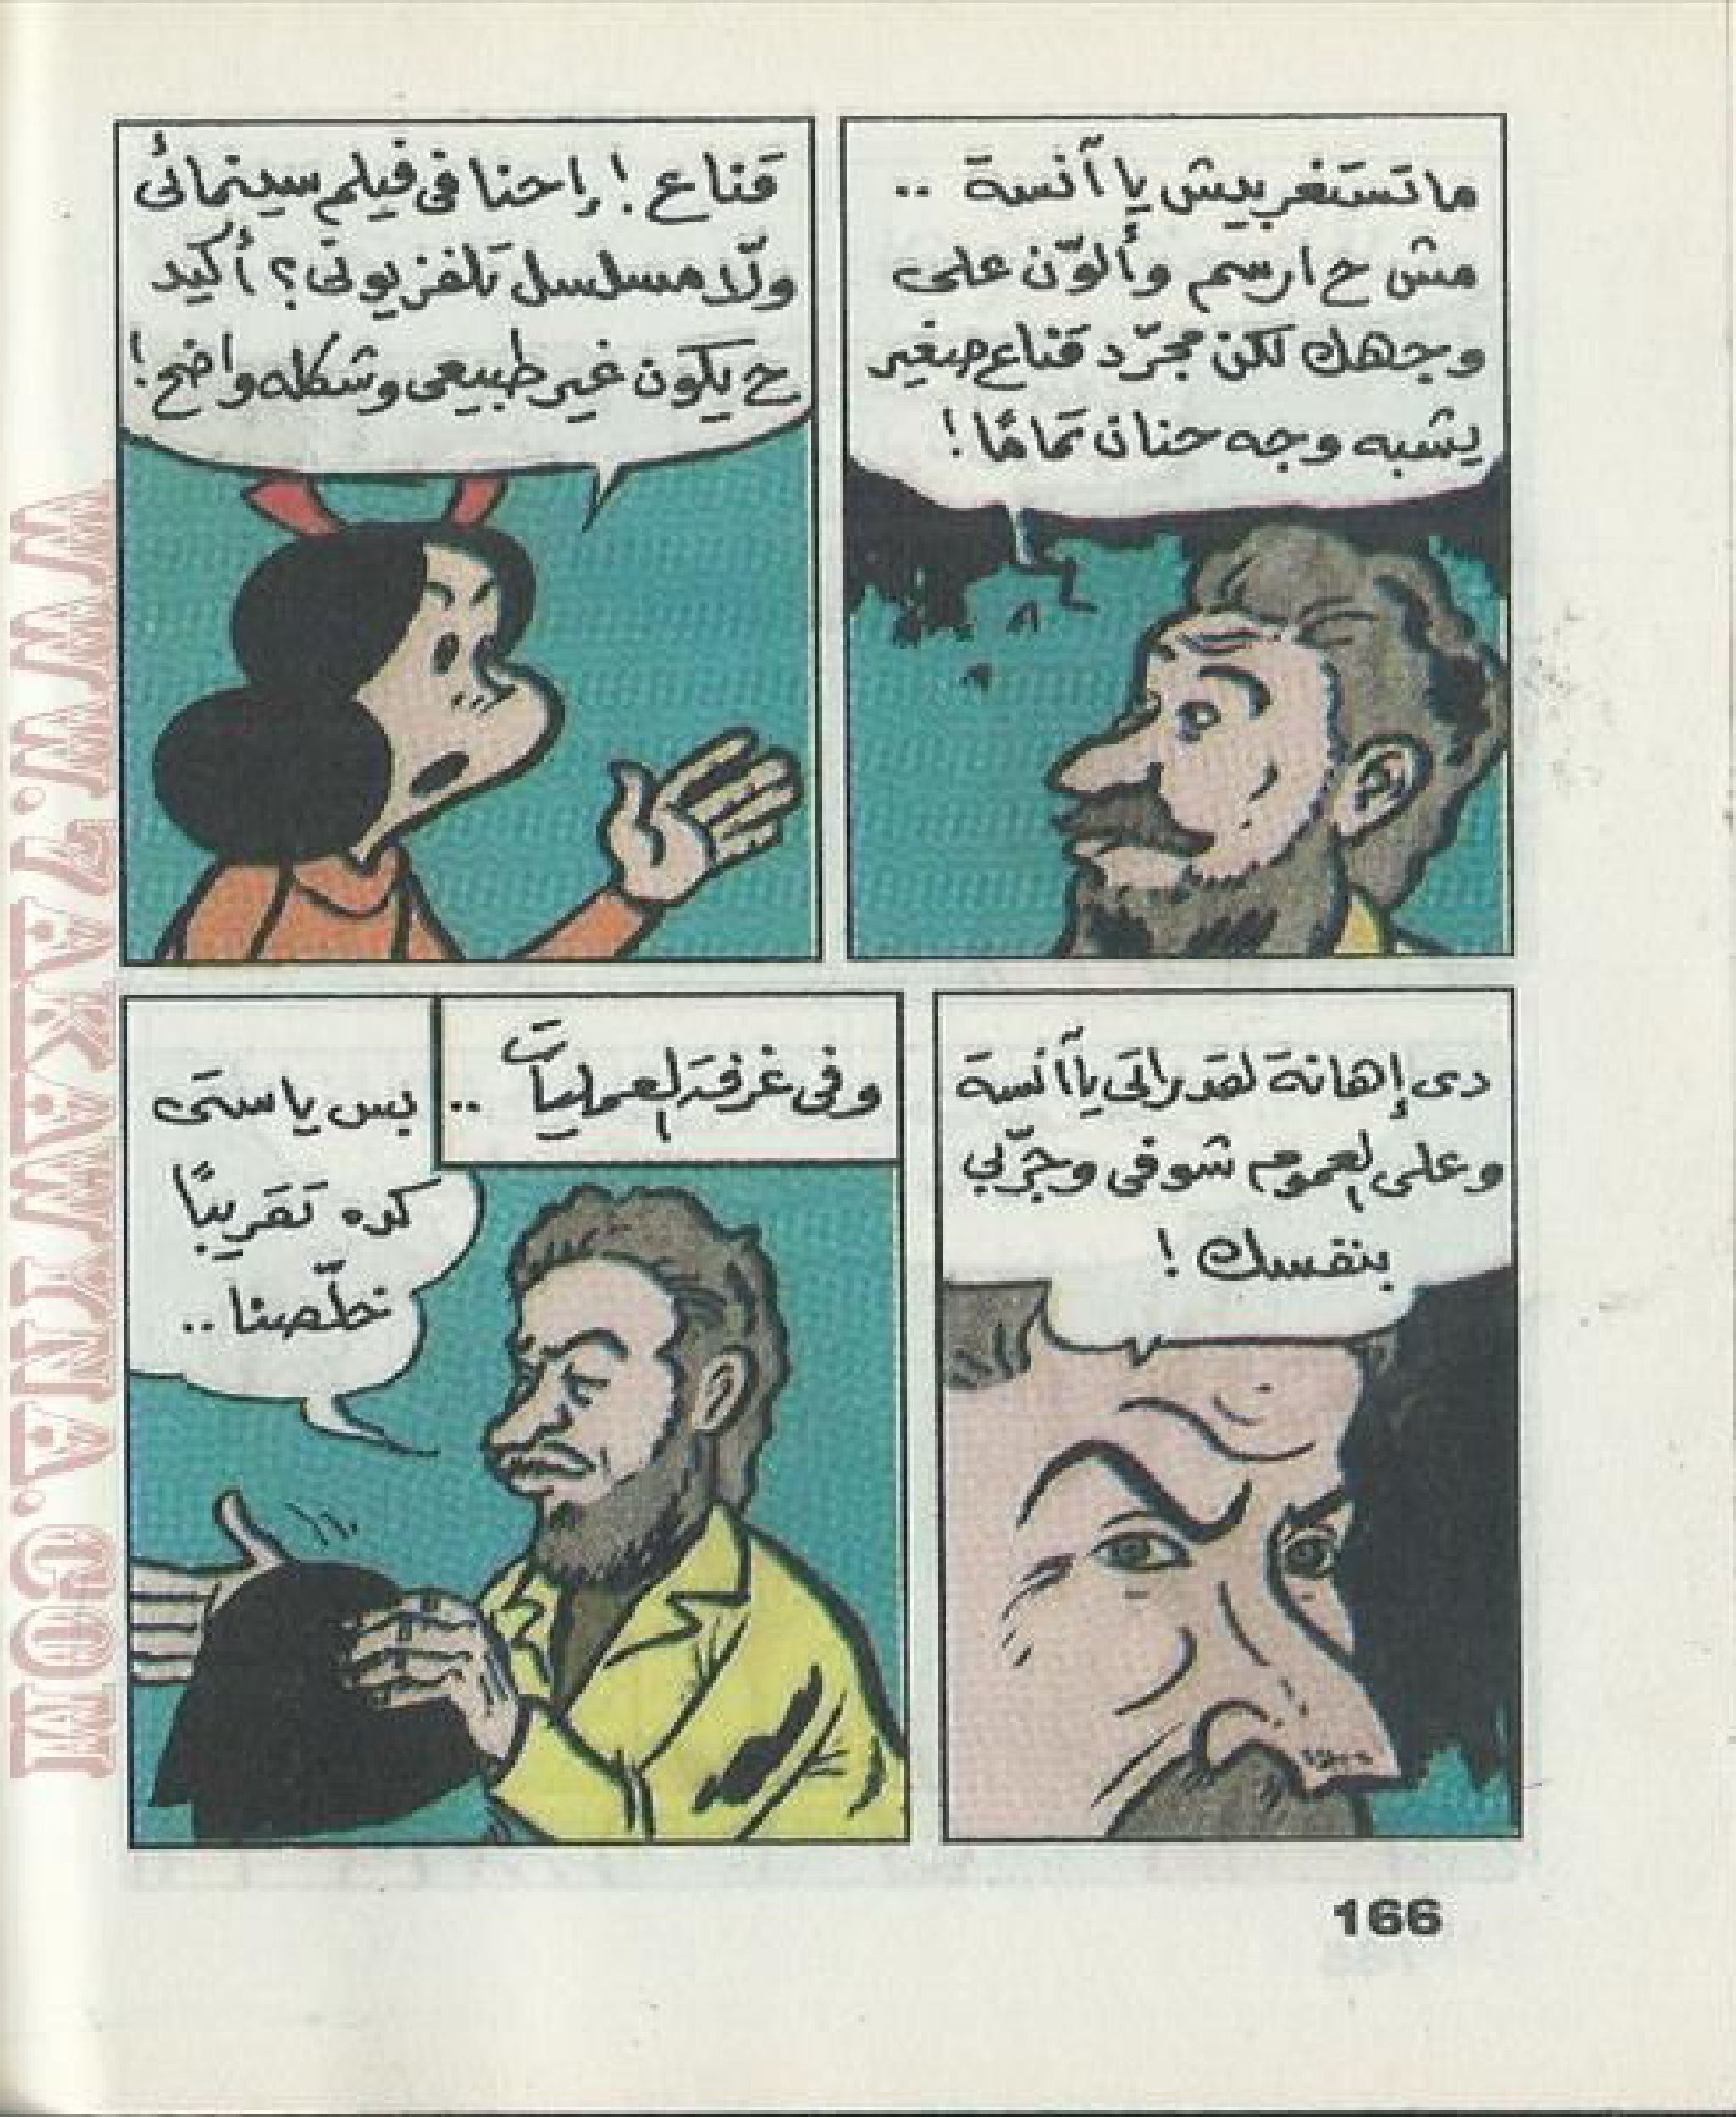 ما تستغربيش يا آنسة ..
مش ح ارسم وألوّن على
وجهك لكن مجرّد قناع صغير
يشبه وجه حنان تمامًا !
قناع ! إحنا فى فيلم سينمائى
ولّا مسلسل تلفزيونى ؟ أكيد
ح يكون غير طبيعى وشكله واضح !
دى إهانة لقدراتى يا آنسة
وعلى العموم شوفى وجرّبى
بنفسك !
وفى غرفة العمليات ..
بس يا ستى
كده تقريبًا
خلّصنا ..
166
WWW.7AKAWINA.COM